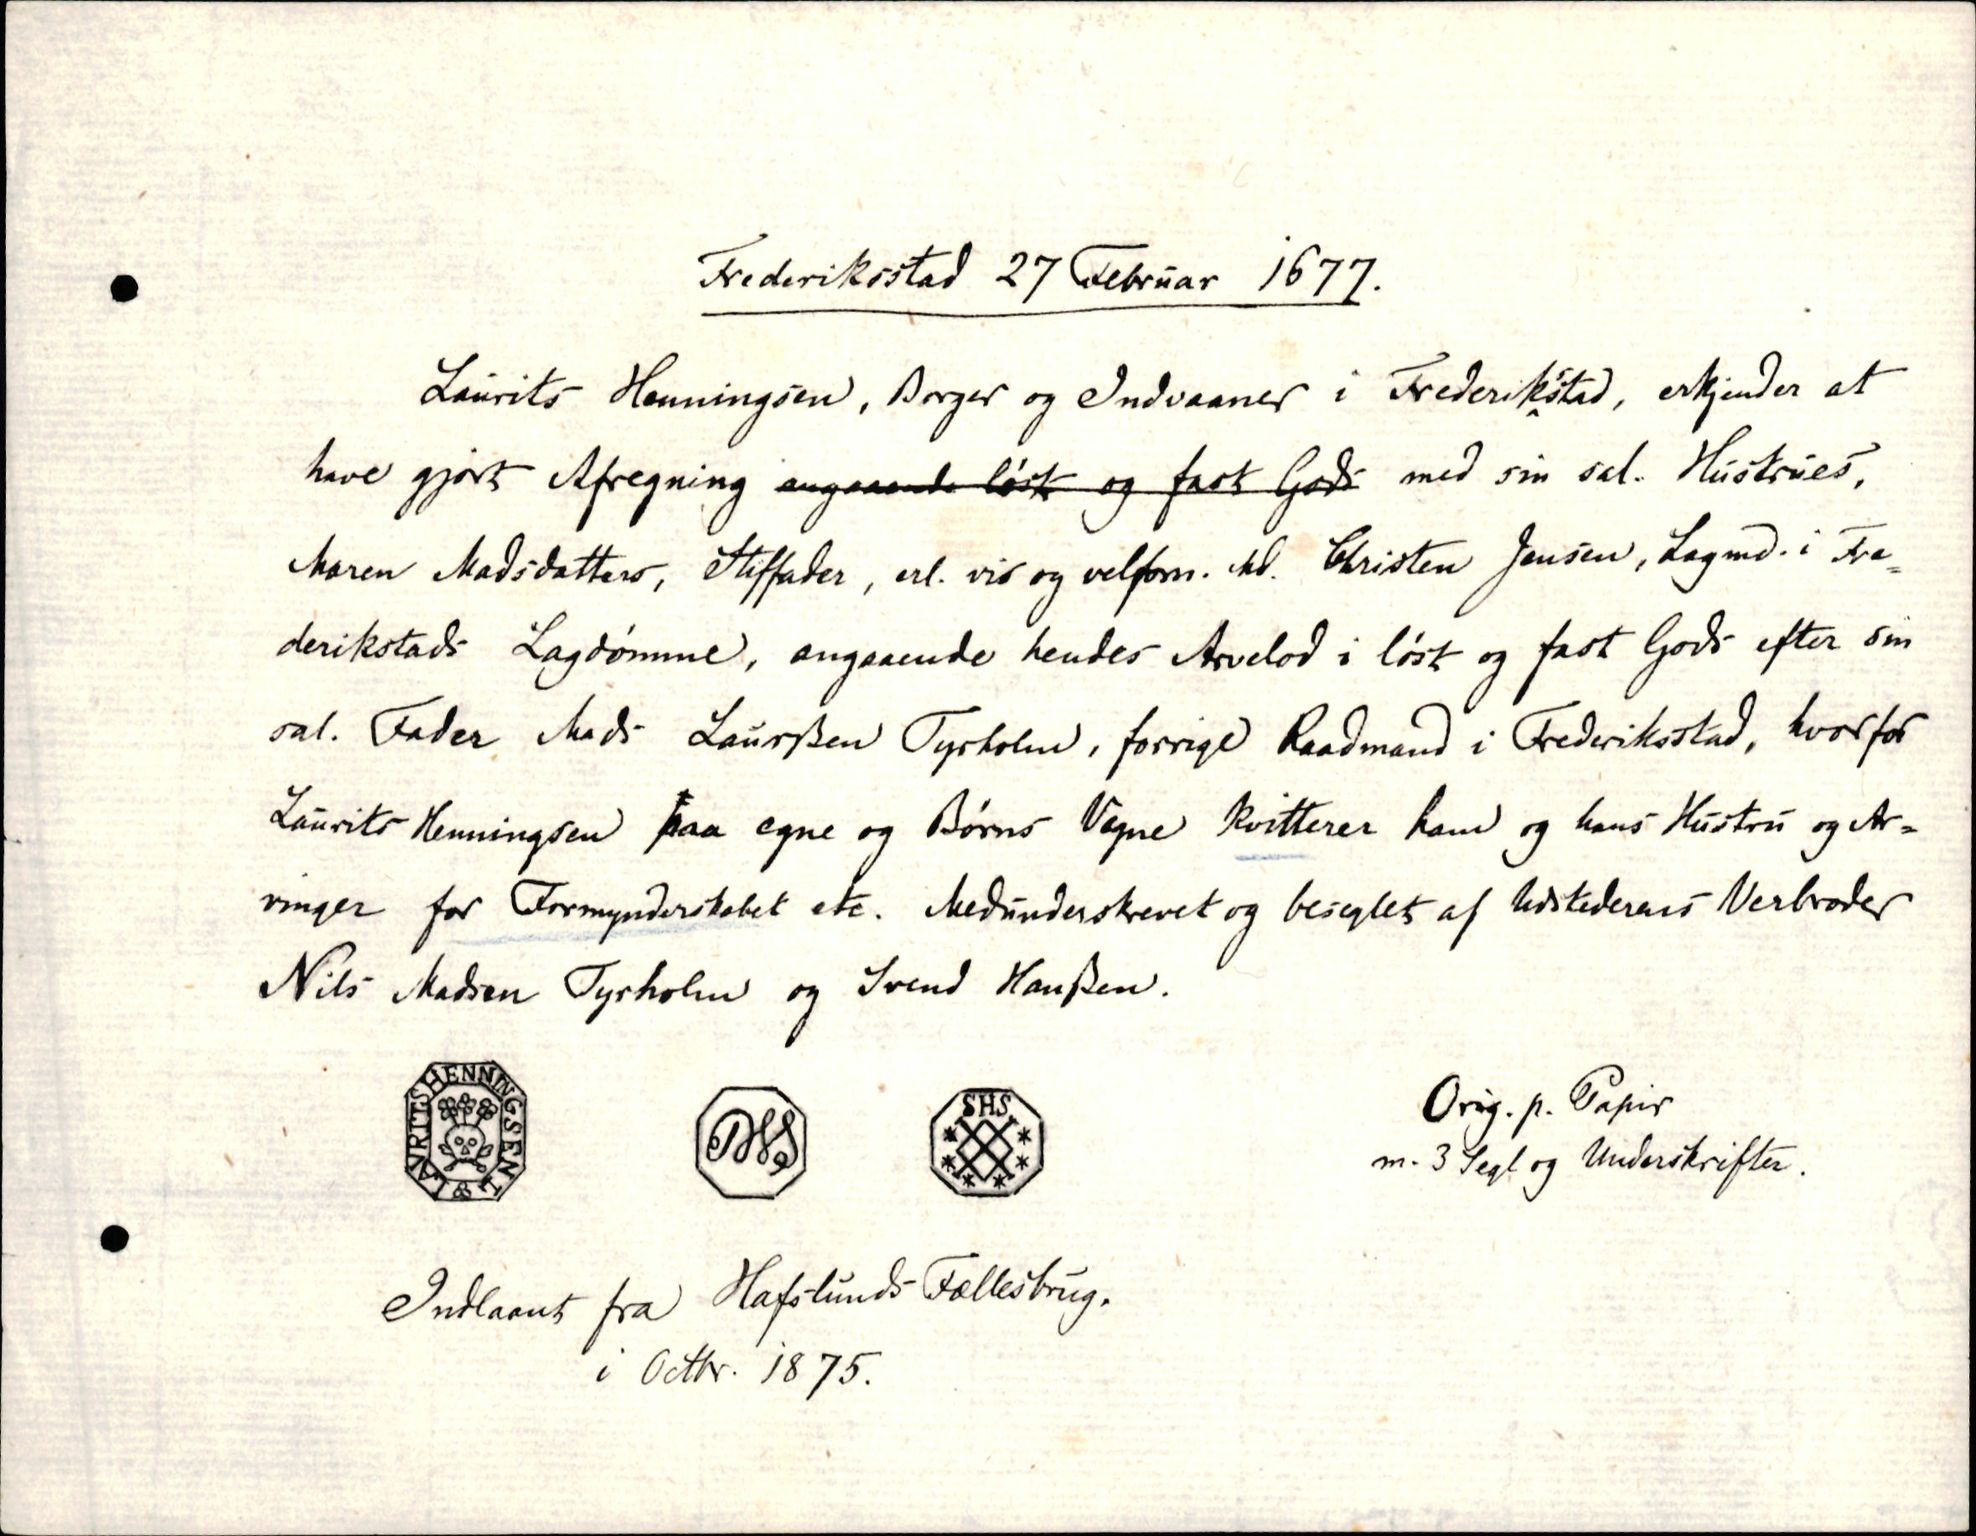 Frederiksstad 27 Februar 1677.
Laurits Henningsen, Borger og Indvaaner i Frederiksstad, erkjender at
have gjort Afregning angaaende löst og fast Gods med sin sal. Hustrues,
Maren Madsdatters, Stiffader, erl. vis og velforn. Md. Christen Jensen, Lagmd. i Fre=
derikstads Lagdömme, angaaende hendes Arvelod i löst og fast Gods efter sin
sal. Fader Mads Laurßen Tyrholm, forrige Raadmand i Frederiksstad, hvorfor
Laurits Henningsen paa egne og Börns Vegne kvitterer ham og hans Hustru og Ar=
vinger for Formynderskabet etc. Medunderskrevet og beseglet af Udstederens Verbroder
Nils Madsen Tyrholm og Svend Hanßen.
LAVRITS HENNINGSEN
SHS
Orig. p. Papir
m. 3 Segl og Underskrifter.
Indlaant fra Hafslunds Fællesbrug.
i Octbr. 1875.